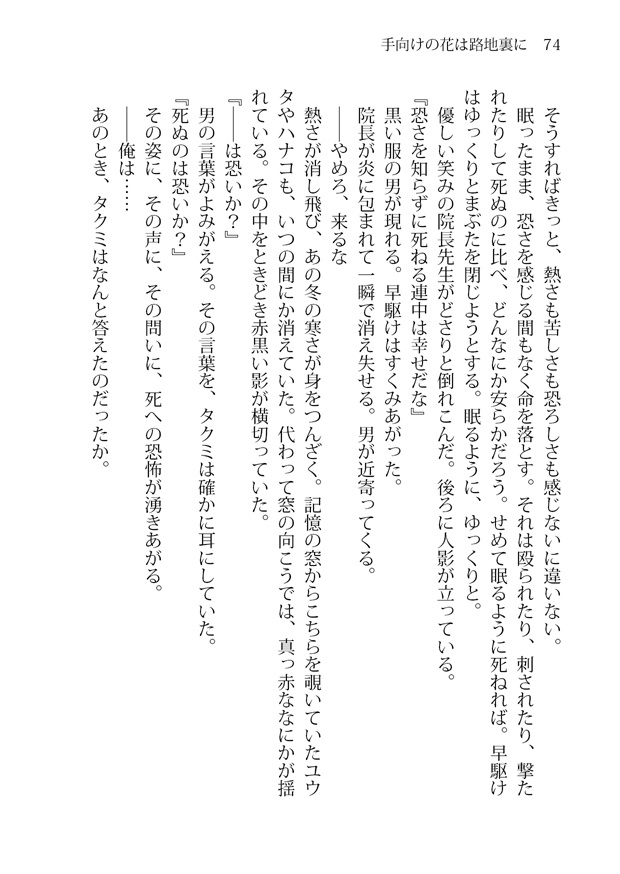 手向けの花は路地裏に　74
そうすればきっと、熱さも苦しさも恐ろしさも感じないに違いない。
眠ったまま、恐さを感じる間もなく命を落とす。それは殴られたり、刺されたり、撃た
れたりして死ぬのに比べ、どんなにか安らかだろう。せめて眠るように死ねれば。早駆け
はゆっくりとまぶたを閉じようとする。眠るように、ゆっくりと。
優しい笑みの院長先生がどさりと倒れこんだ。後ろに人影が立っている。
『恐さを知らずに死ねる連中は幸せだな』
黒い服の男が現れる。早駆けはすくみあがった。
院長が炎に包まれて一瞬で消え失せる。男が近寄ってくる。
――やめろ、来るな
熱さが消し飛び、あの冬の寒さが身をつんざく。記憶の窓からこちらを覗いていたユウ
タやハナコも、いつの間にか消えていた。代わって窓の向こうでは、真っ赤ななにかが揺
れている。その中をときどき赤黒い影が横切っていた。
『――は恐いか？』
男の言葉がよみがえる。その言葉を、タクミは確かに耳にしていた。
『死ぬのは恐いか？』
その姿に、その声に、その問いに、死への恐怖が湧きあがる。
――俺は……
あのとき、タクミはなんと答えたのだったか。